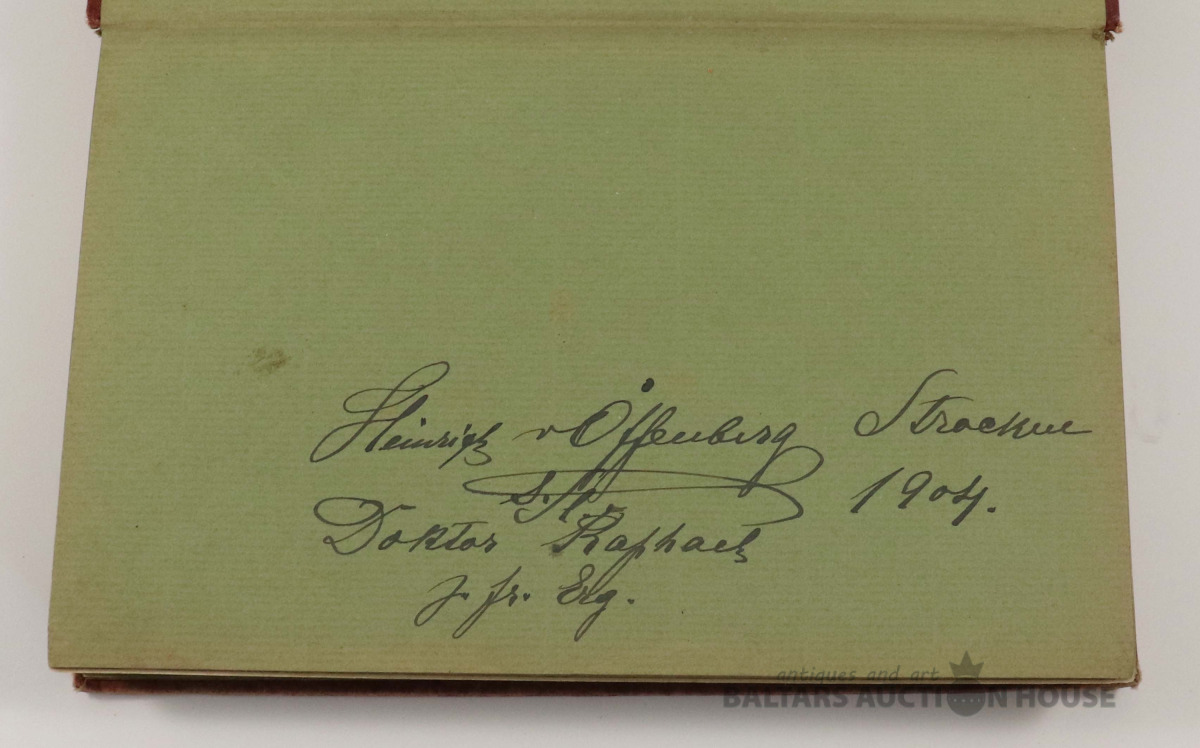 Heinrich v Offenberg Strocken
s. Sl 1904.
Doktor Raphael
z. fr. Erg.
antiques and art
BALTARS AUCTION HOUSE